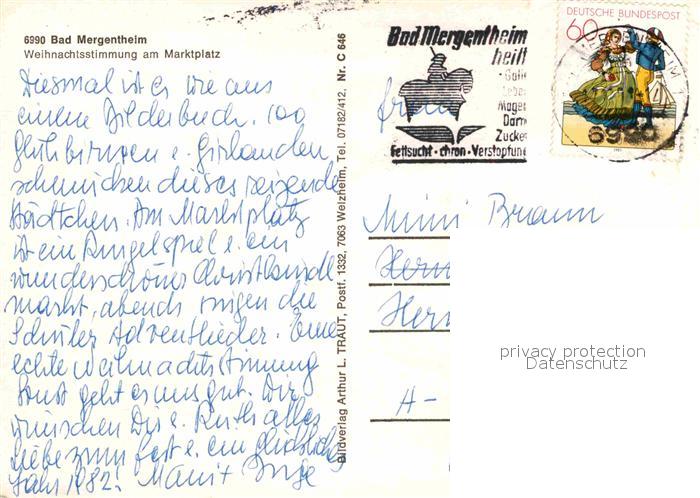 6990 Bad Mergentheim
Weihnachtsstimmung am Marktplatz
Diesmal ist es wie aus
einem Bilderbuch. 100
Glühbirnen u. Girlanden
schmücken dieses reizende
Städtchen. Am Marktplatz
ist ein Ringelspiel u. ein
wunderschöner Christkindl
markt, abends singen die
Schüler Adventlieder. Eine
echte Weihnachtsstimmung
Sonst geht es uns gut. Wir
wünschen Dir u. Ruth alles
Liebe zum Fest u. ein glückliches
Jahr 1982!
Bildverlag Arthur L. TRAUT, Postf. 1332, 7063 Welzheim, Tel. 07182/412, Nr. C 646
Bad Mergentheim
heilt
Galle
Leber
Magen
Darm
Zucker
Fettsucht · chron · Verstopfung
DEUTSCHE BUNDESPOST
60
6990
1981
Frau
Mimi Braun
Herrn
Herr
A-
privacy protection
Datenschutz